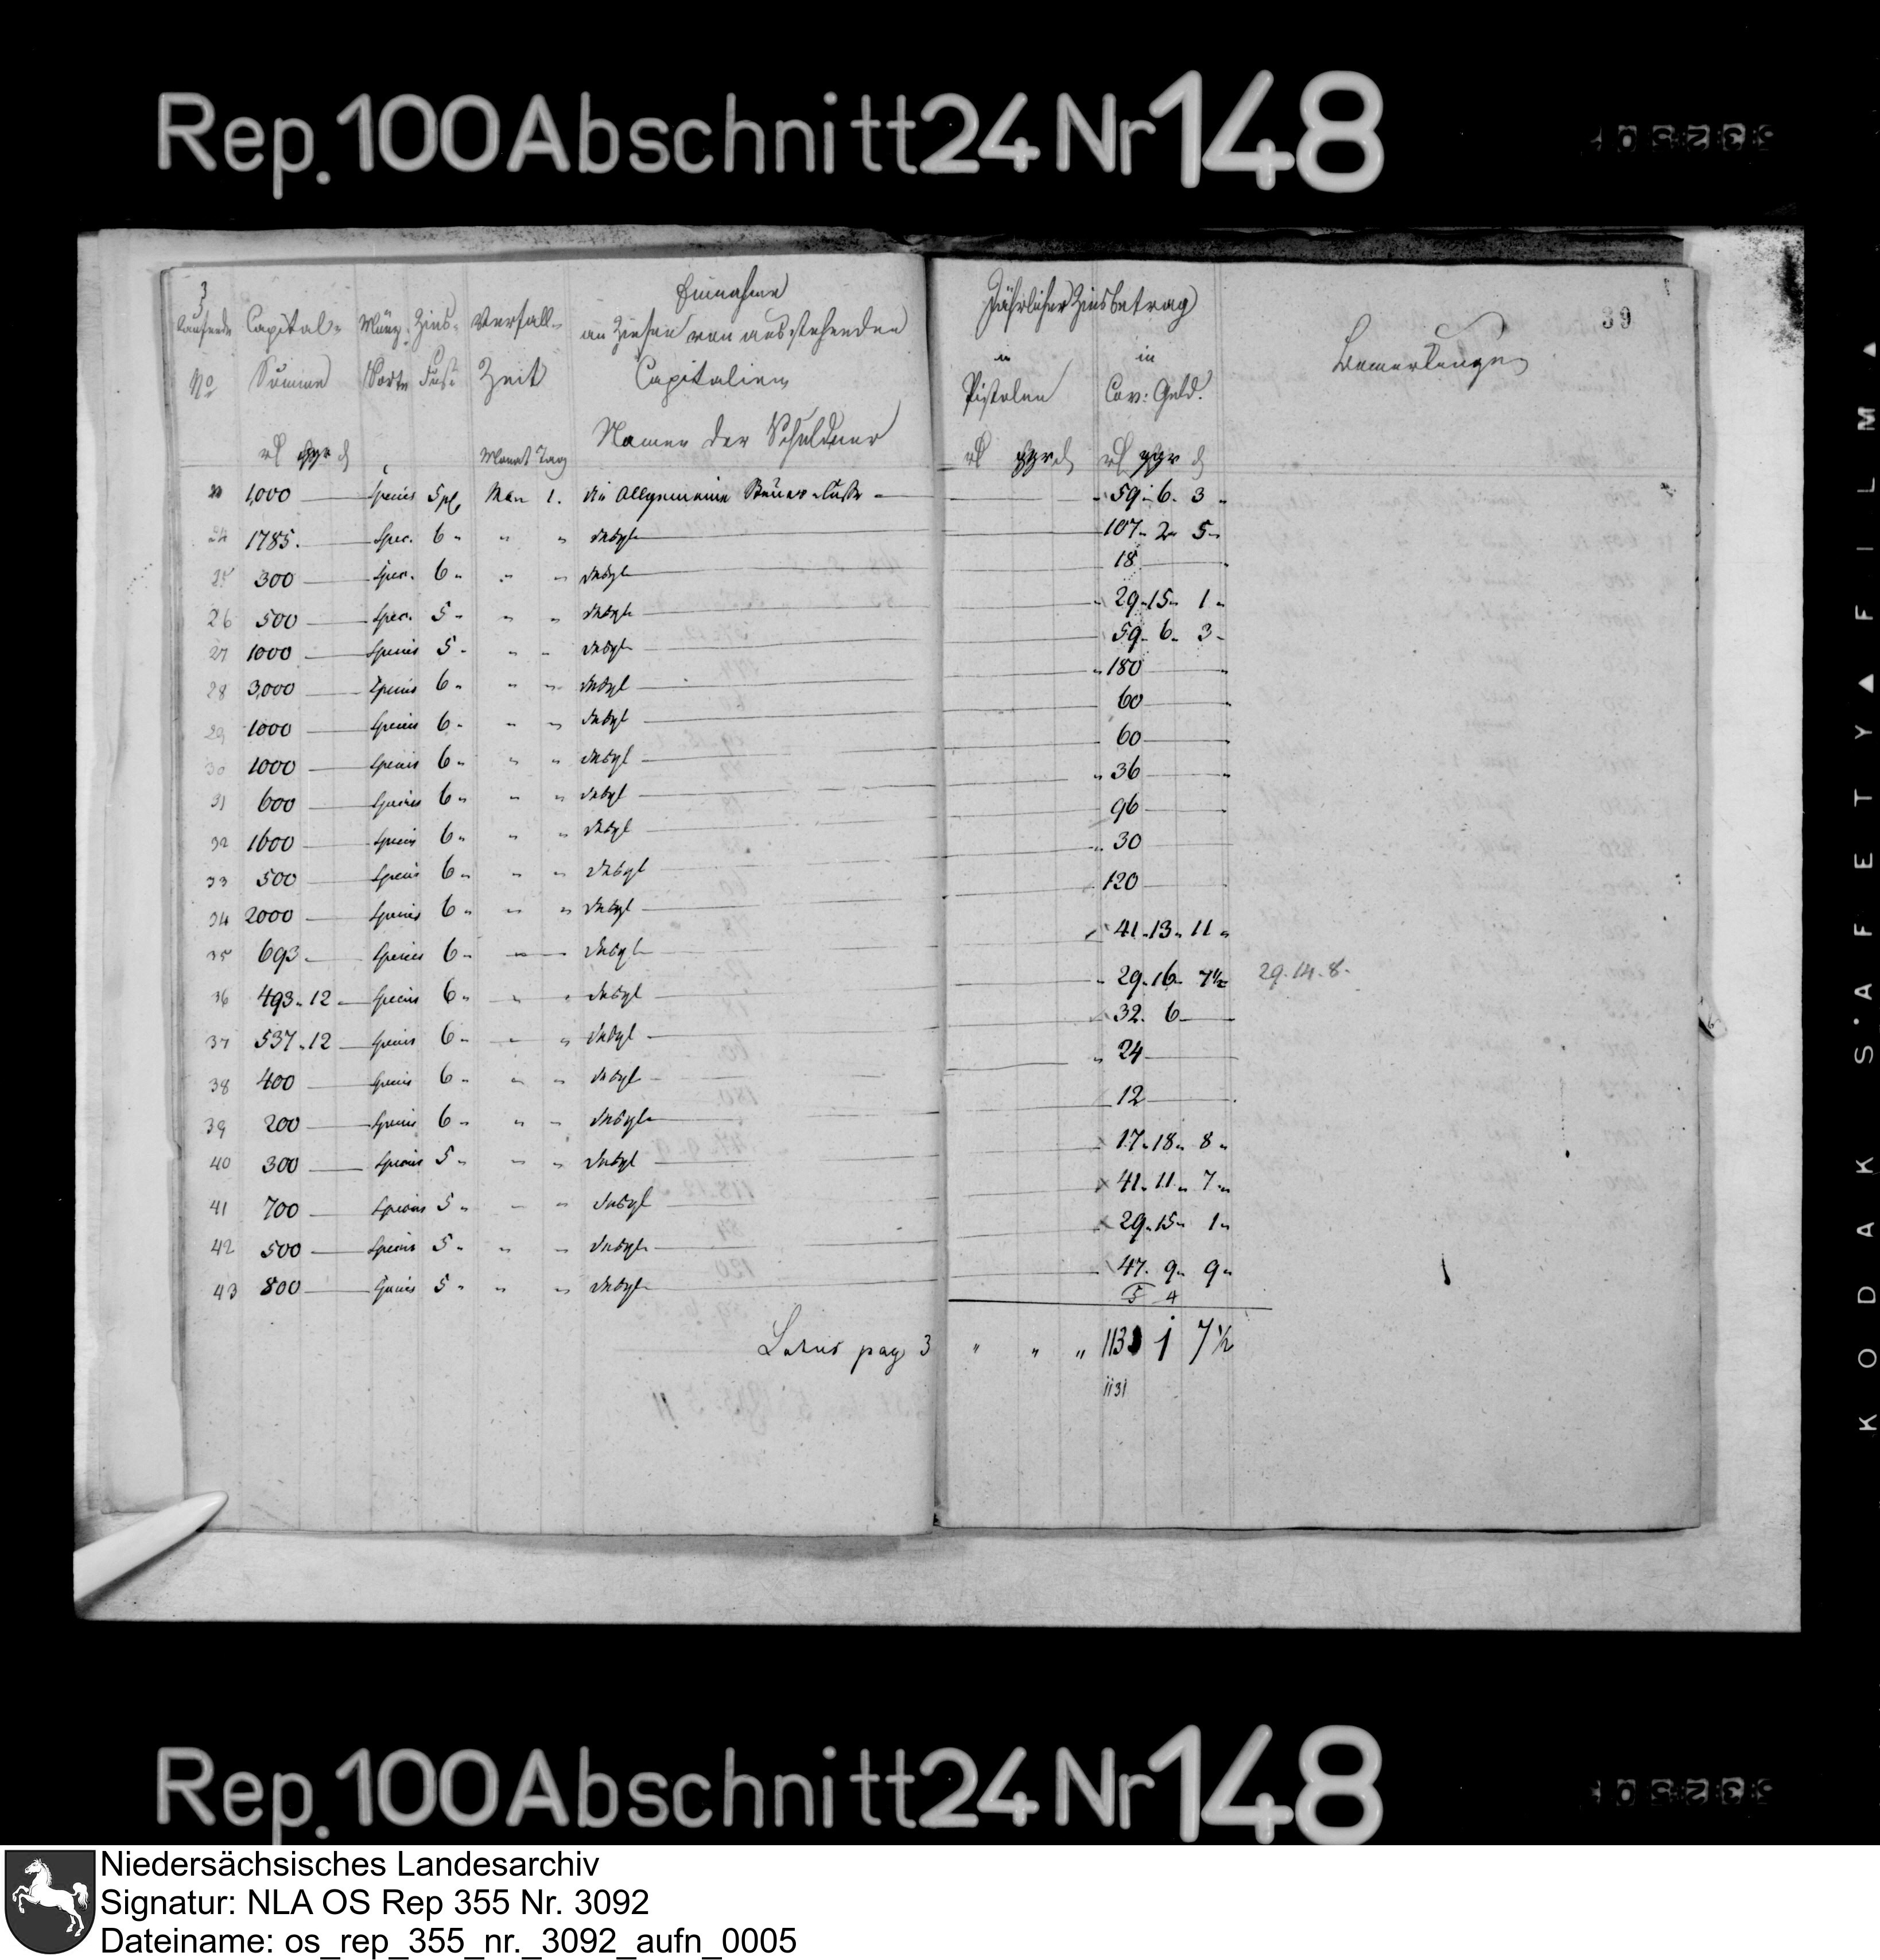 Rep. 100 Abschnitt 24 Nr 148
3
39
Laufende Capital- Münz- Zins- Verfall- Einnahme Jährlicher Zinsbetrag
No Summe Sorte Fuß Zeit an Zinsen von ausstehenden in in Bemerkungen
Capitalien Pistolen Cov: Geld.
Namen der Schuldner
rl ggr d Monat Tag rl ggr d rl ggr d
1,000 Species 5 pC May 1. die Allgemeine Steuer-Casse 59. 6. 3
24 1785. Spec. 6 " " " dasgl 107. 2. 5
25 300 Spec. 6 " " " dasgl 18
26 500 Spec. 5 " " " dasgl 29. 15. 1
27 1000 Species 5 " " " dasgl 59. 6. 3
28 3,000 Species 6 " " " dasgl 180
29 1000 Species 6 " " " dasgl 60
30 1000 Species 6 " " " dasgl 60
31 600 Species 6 " " " dasgl 36
32 1600 Species 6 " " " dasgl 96
33 500 Species 6 " " " dasgl 30
34 2000 Species 6 " " " dasgl 120
35 693 Species 6 " " " dasgl 41. 13. 11
36 493. 12 Species 6 " " " dasgl 29. 16. 7½ 29. 14. 8.
37 537. 12 Species 6 " " " dasgl 32. 6
38 400 Species 6 " " " dasgl 24
39 200 Species 6 " " " dasgl 12
40 300 Species 5 " " " dasgl 17. 18. 8
41 700 Species 5 " " " dasgl 41. 11. 7
42 500 Species 5 " " " dasgl 29. 15. 1
43 800 Species 5 " " " dasgl 47. 9. 9
5 4
Latus pag 3 " " " 1131 1 7½
1131
KODAK SAFETY FILM
Rep. 100 Abschnitt 24 Nr 148
Niedersächsisches Landesarchiv
Signatur: NLA OS Rep 355 Nr. 3092
Dateiname: os_rep_355_nr._3092_aufn_0005